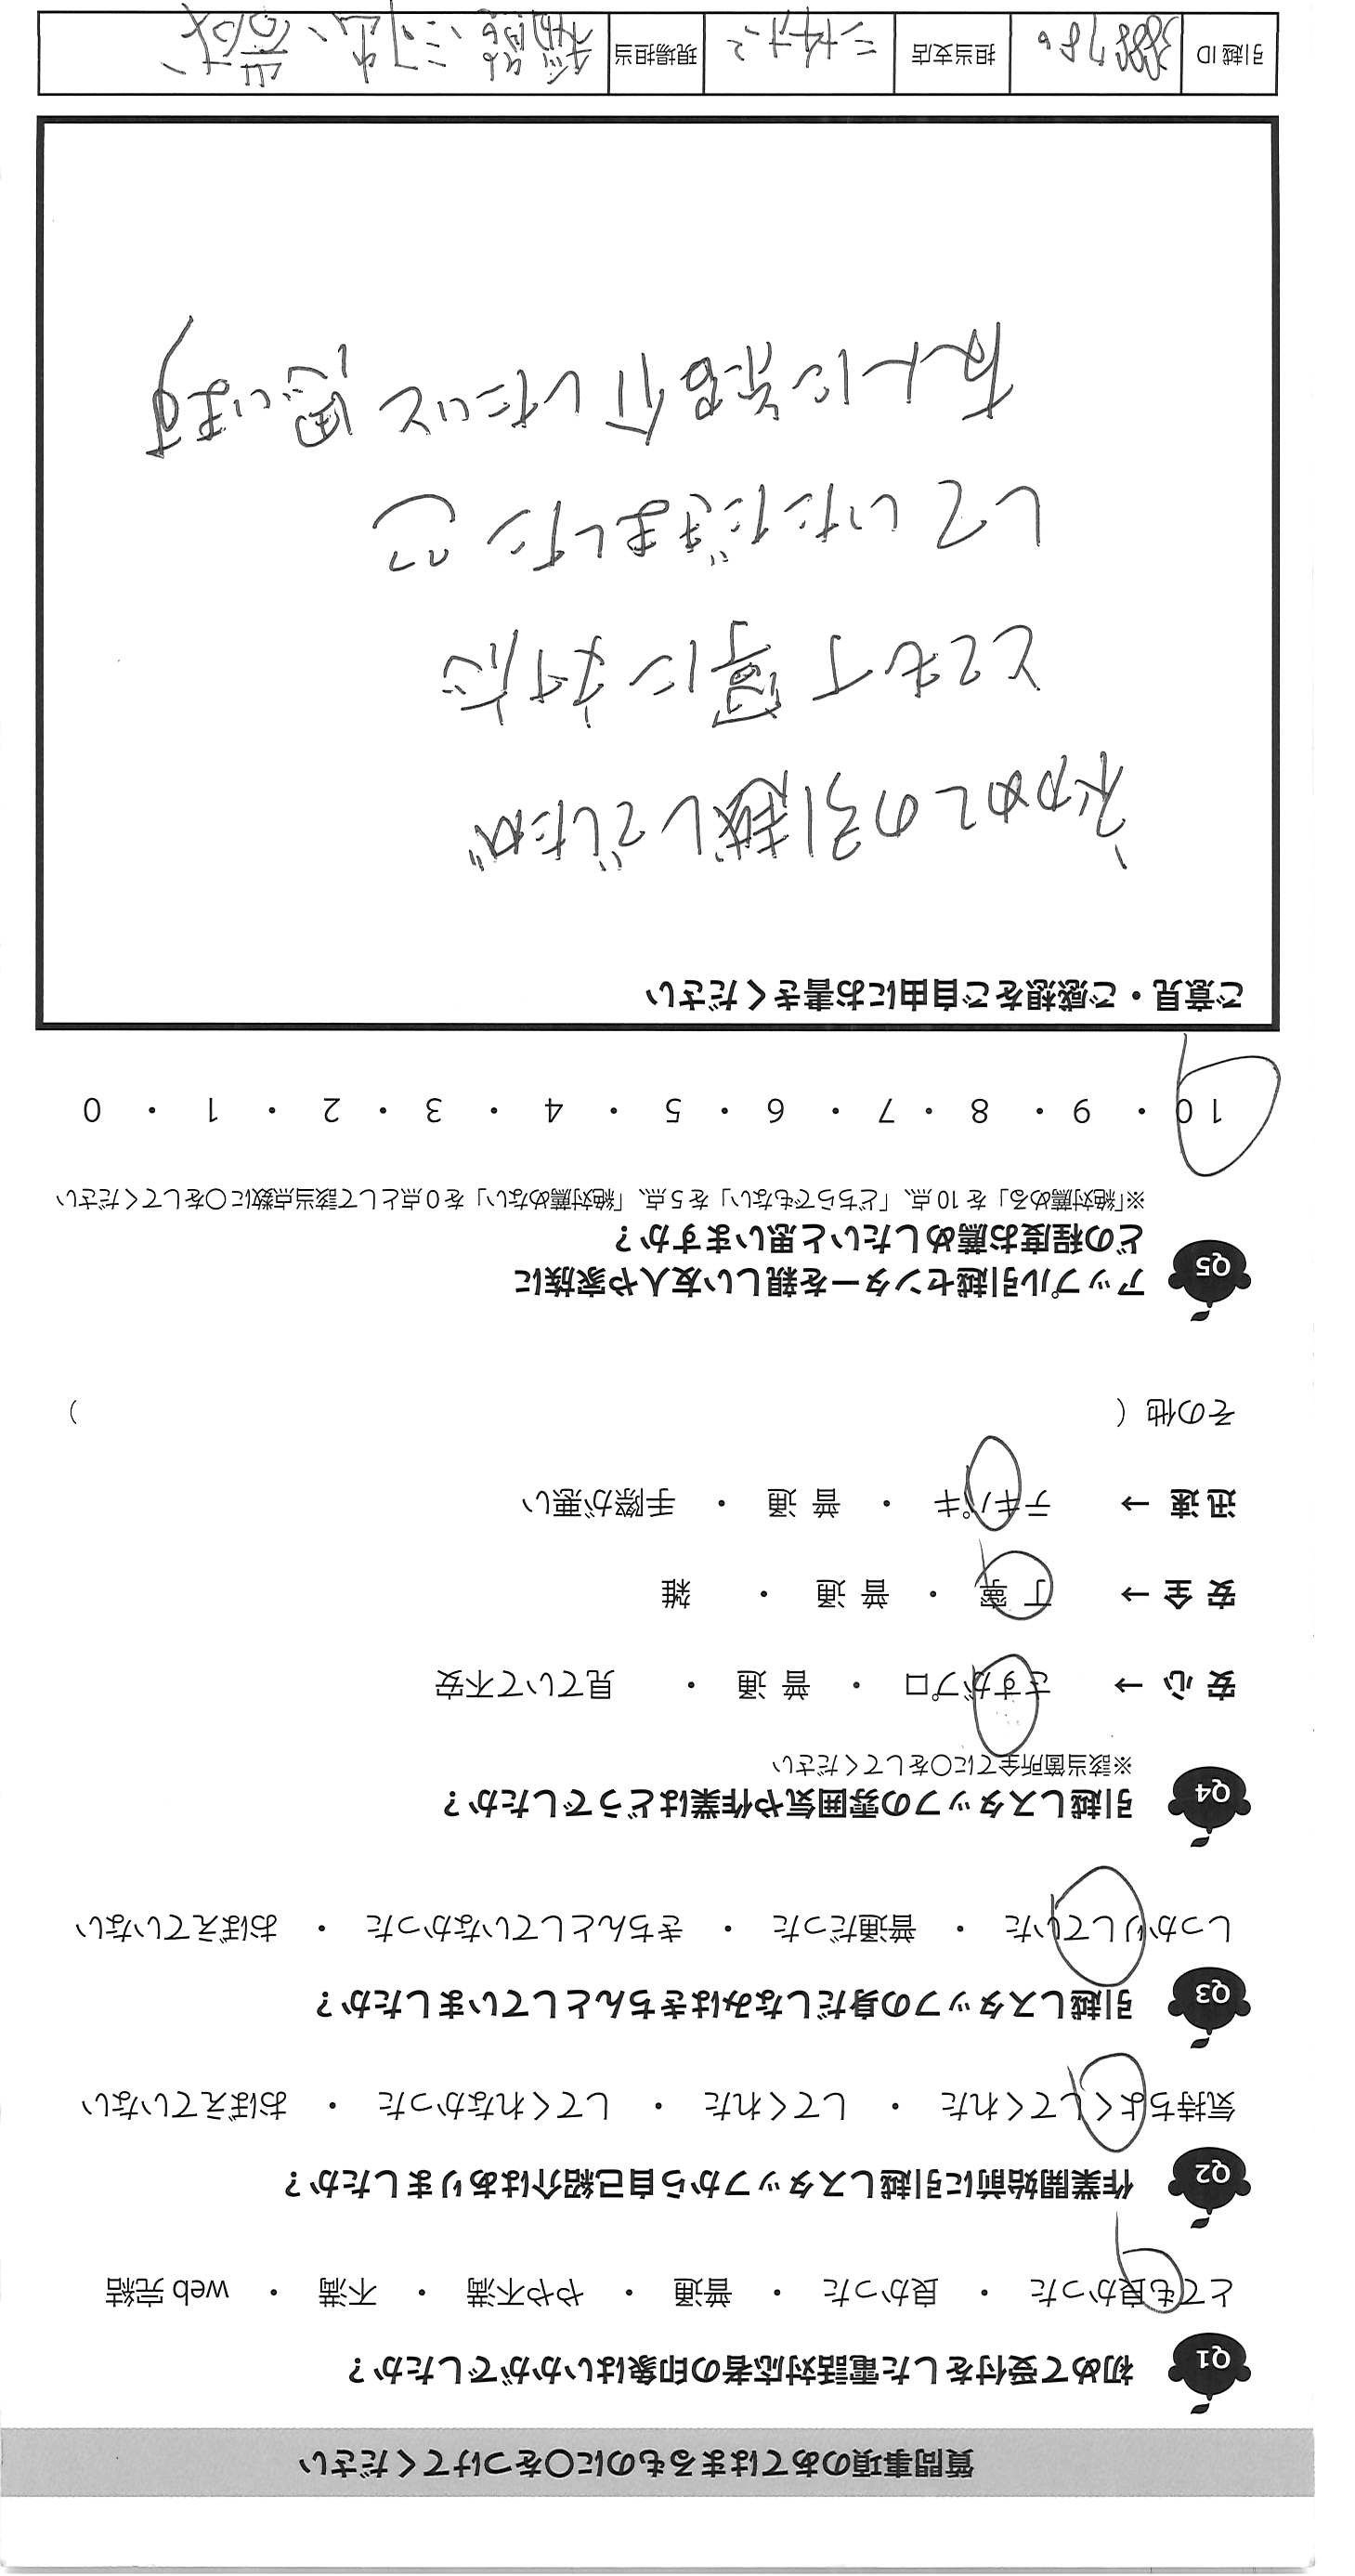 質問事項のあてはまるものに○をつけてください
Q1 初めて受付をした電話対応者の印象はいかがでしたか？
とても良かった ・ 良かった ・ 普通 ・ やや不満 ・ 不満 ・ web 完結
Q2 作業開始前に引越しスタッフから自己紹介はありましたか？
気持ちよくしてくれた ・ してくれた ・ してくれなかった ・ おぼえていない
Q3 引越しスタッフの身だしなみはきちんとしていましたか？
しっかりしていた ・ 普通だった ・ きちんとしていなかった ・ おぼえていない
Q4 引越しスタッフの雰囲気や作業はどうでしたか？
※該当箇所全てに○をしてください
安心 → さすがプロ ・ 普通 ・ 見ていて不安
安全 → 丁寧 ・ 普通 ・ 雑
迅速 → テキパキ ・ 普通 ・ 手際が悪い
その他（ ）
Q5 アップル引越センターを親しい友人や家族に
どの程度お薦めしたいと思いますか？
※「絶対薦める」を 10 点、「どちらでもない」を 5 点、「絶対薦めない」を 0 点として該当点数に○をしてください
10 ・ 9 ・ 8 ・ 7 ・ 6 ・ 5 ・ 4 ・ 3 ・ 2 ・ 1 ・ 0
ご意見・ご感想をご自由にお書きください
初めての引越しでしたが
とても丁寧に対応
していただきました
友人に紹介したいと思います
引越 ID 担当支店 現場担当